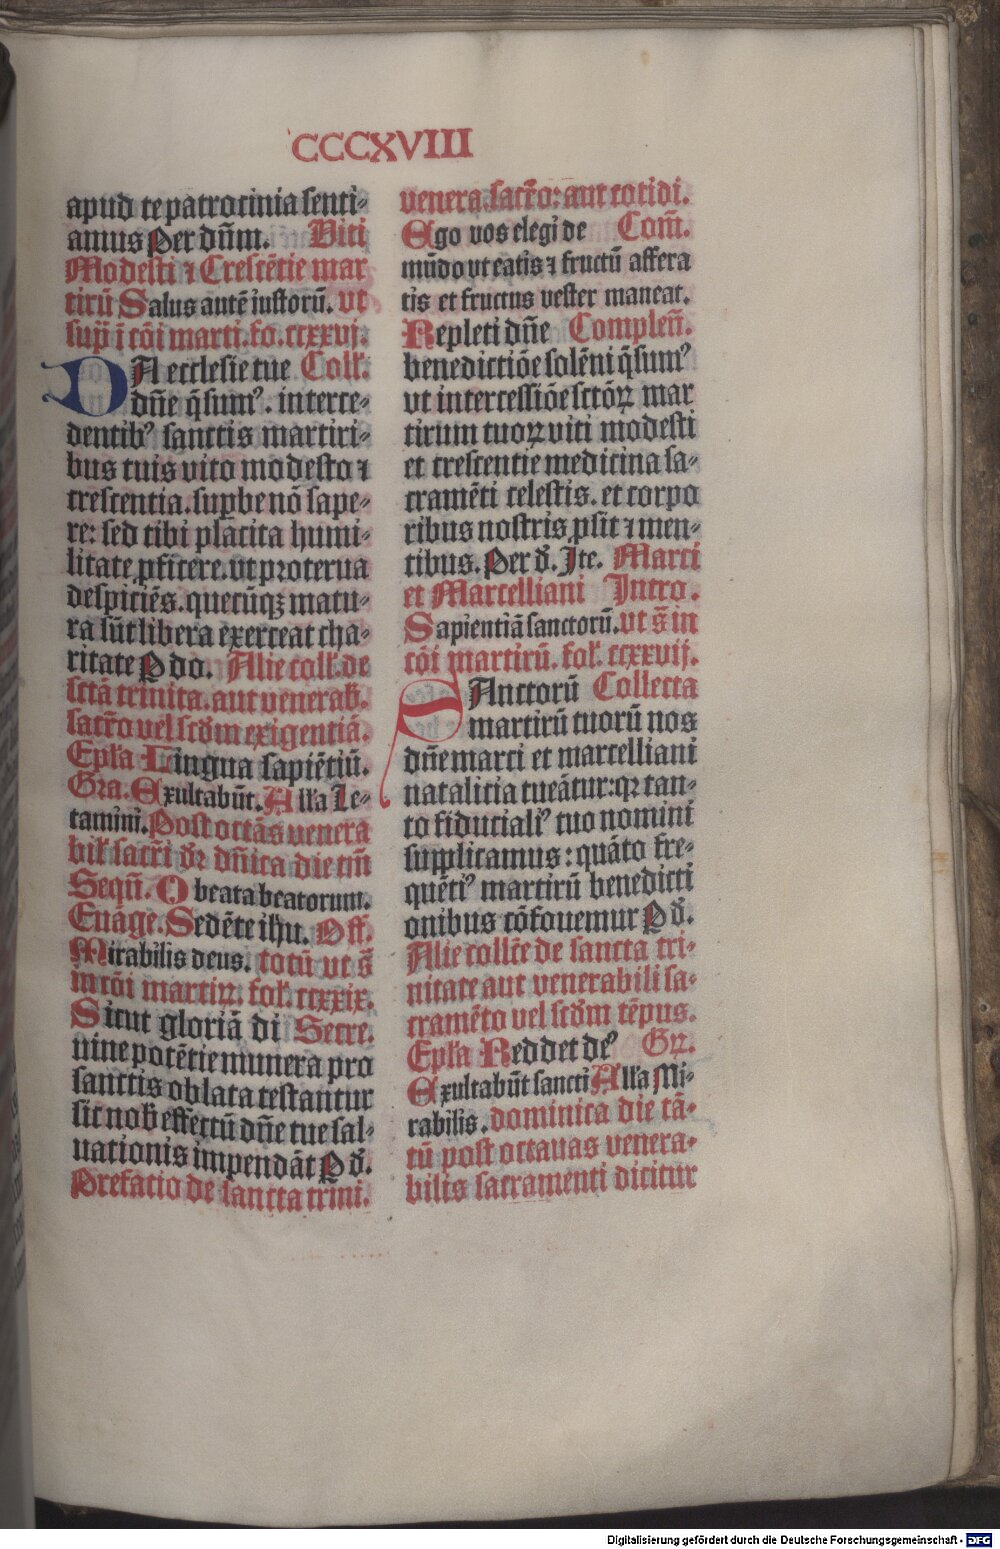 CCCXVIII
apud te patrocinia senti⸗
amus Per dn̄m. Viti
Modesti ⁊ Crescētie mar
tirū Salus autē iustorū. vt
supͣ ī cōi marti. fo. ccxxvj.
DA ecclesie tue Coll.
dn̄e q̄sumꝰ. interce⸗
dentibꝰ sanctis martiri⸗
bus tuis vito modesto ⁊
crescentia. suꝑbe nō sape⸗
re: sed tibi placita humi⸗
litate ꝓficere. vt proterua
despiciēs. quecūqꝫ matu⸗
ra sūt libera exerceat cha⸗
ritate P do. Alie coll. de
sctā trinita. aut venerab.
sacr̄o vel scd̄m exigentiā.
Epl̄a Lingua sapiētiū.
Gra. Exultabūt. All'a Le⸗
tamini. Post octās venera
bil' sacr̄i dr̄ dn̄ica die tm̄
Seqū. O beata beatorum.
Euāge. Sedēte ihu. Off.
Mirabilis deus. totū vt s̄
in cōi martiꝝ. fol. ccxxix.
Sicut gloriā di Secre.
uine potētie munera pro
sanctis oblata testantur
sic nob̄ effectū dn̄e tue sal⸗
uationis impendāt P d̄.
Prefatio de sancta trini.
venera sacr̄o: aut cotidi.
Ego vos elegi de Com̄.
mūdo vt eatis ⁊ fructū affera
tis et fructus vester maneat.
Repleti dn̄e Complen̄.
benedictiōe solēni q̄sumꝰ
vt intercessiōe sctōꝝ mar
tirum tuoꝝ viti modesti
et crescentie medicina sa⸗
cramēti celestis. et corpo
ribus nostris ꝓsit ⁊ men⸗
tibus. Per d̄. Ite. Marci
et Marcelliani Intro.
Sapientiā sanctorū. vt s̄ in
cōi martirū. fol. ccxxvij.
SAnctorū Collecta
martirū tuorū nos
dn̄e marci et marcelliani
natalicia tueātur: qꝛ tan⸗
to fiducialiꝰ tuo nomini
supplicamus: quāto fre⸗
quētiꝰ martirū benedicti
onibus cōfouemur P d̄.
Alie coll'e de sancta tri⸗
nitate aut venerabili sa⸗
cramēto vel scd̄m tēpus.
Epl̄a Reddet deꝰ Gꝛ.
Exultabūt sancti All'a Mi⸗
rabilis. dominica die tā⸗
tū post octauas venera⸗
bilis sacramenti dicitur
Digitalisierung gefördert durch die Deutsche Forschungsgemeinschaft - DFG